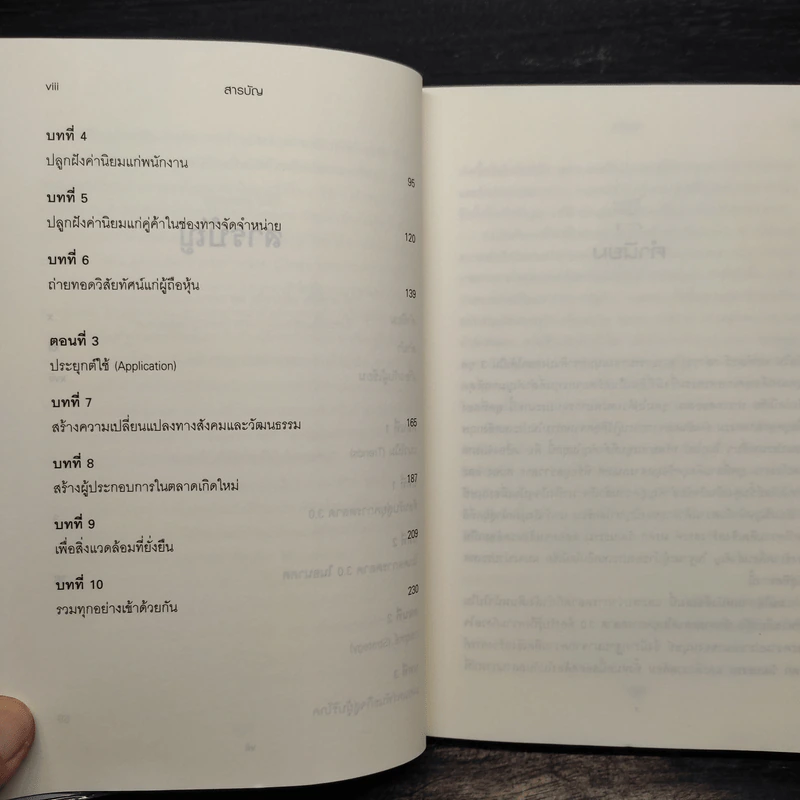 viii
สารบัญ
บทที่ 4
ปลูกฝังค่านิยมแก่พนักงาน
95
บทที่ 5
ปลูกฝังค่านิยมแก่คู่ค้าในช่องทางจัดจำหน่าย
120
บทที่ 6
ถ่ายทอดวิสัยทัศน์แก่ผู้ถือหุ้น
139
ตอนที่ 3
ประยุกต์ใช้ (Application)
บทที่ 7
สร้างความเปลี่ยนแปลงทางสังคมและวัฒนธรรม
165
บทที่ 8
สร้างผู้ประกอบการในตลาดเกิดใหม่
187
บทที่ 9
เพื่อสิ่งแวดล้อมที่ยั่งยืน
209
บทที่ 10
รวมทุกอย่างเข้าด้วยกัน
230